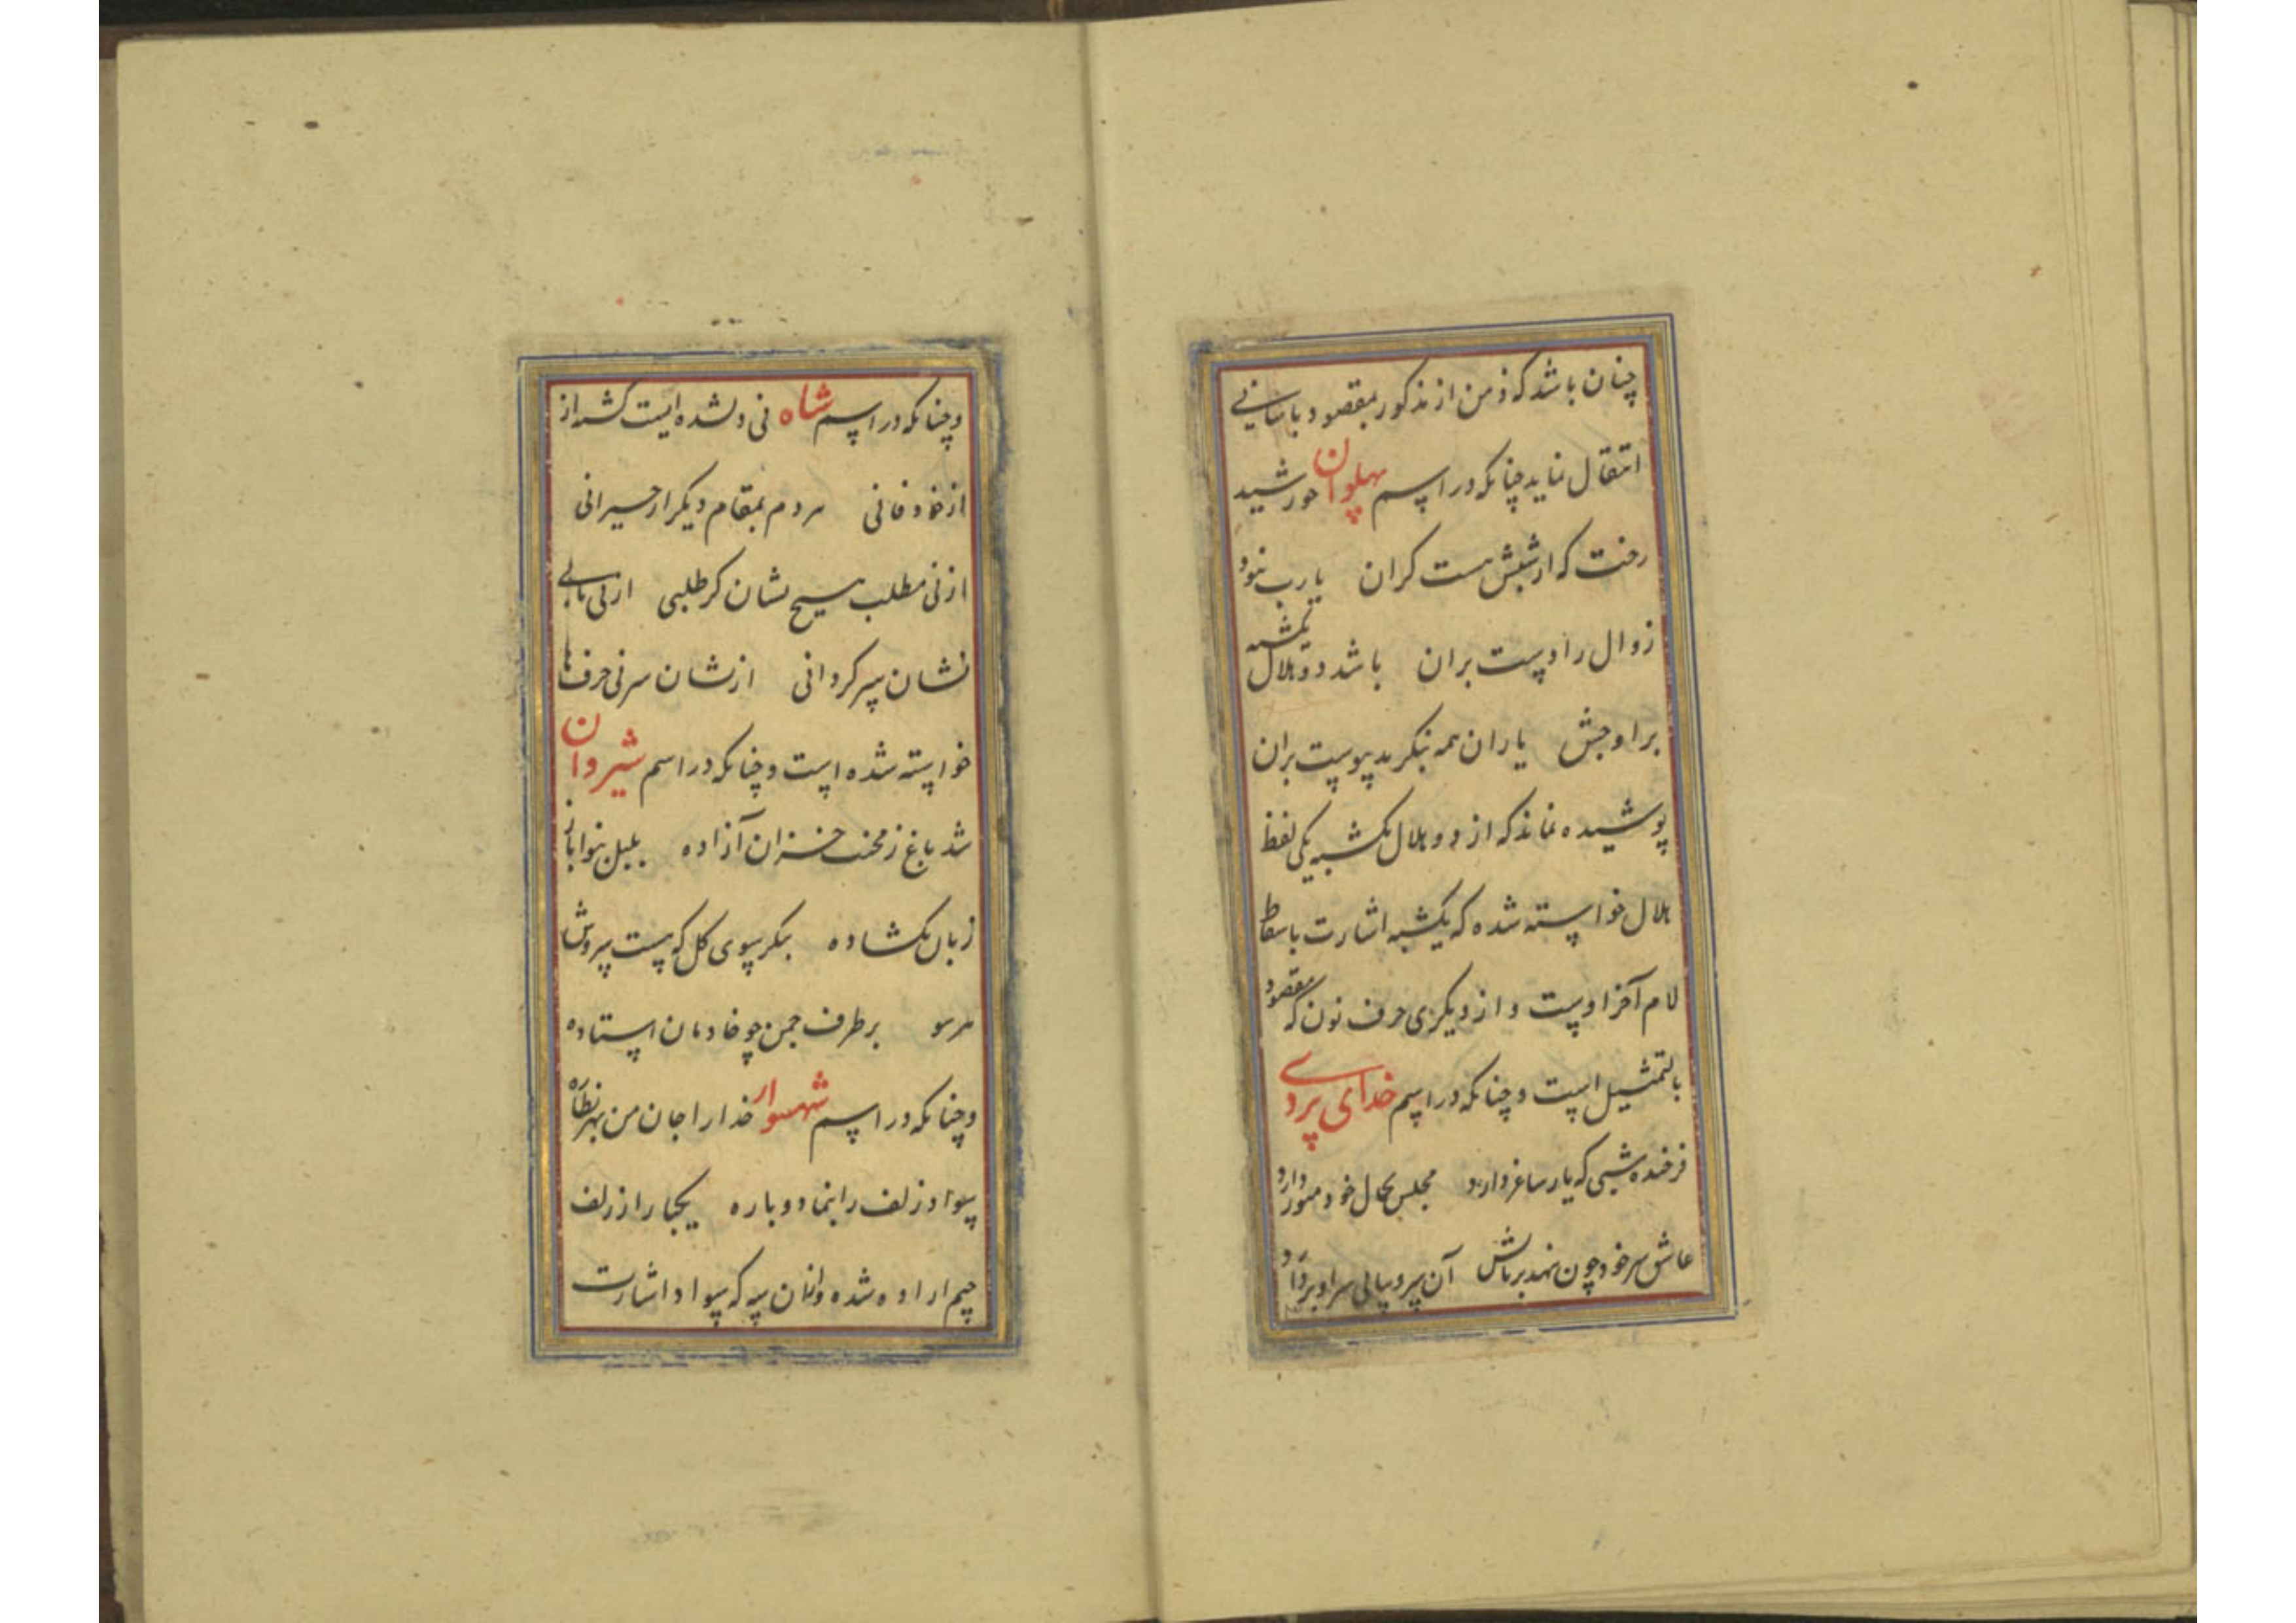 چنان باشد که ذهن از مذکور بمقصود باسانی
انتقال نماید چنانکه در اسم پهلوان خورشید
رخت که ارشبش هست کران یارب نبود
زوال را دست بران باشد دو هلال یکشبه
بر اوجش یاران همه بنکرید پیوست بران
پوشیده نماند که از دو هلال یکشبه یکی لفظ
هلال خواسته شده که یکشبه اشارت باسقاط
لام آخر اوست و از دیکری حرف نون که مقصود
بالتمثیل است و چنانکه در اسم خدای بردی
فرخنده شبی که یار ساغر دارد مجلس بجمال خود منور دارد
عاشق سر خود چون نهد بر پاش آن سرو بپای سر او بردارد
و چنانکه در اسم شاه نی دلشده ایست کشته از
از خود فانی هر دم بمقام دیکر از حیرانی
از نی مطلب هیچ نشان کر طلبی از نی یابی
نشان سر کردانی از نشان سر نی حرف ها
خواسته شده است و چنانکه در اسم شیروان
شد باغ ز محنت خزان آزاده بلبل بنوا باز
زبان بکشاده بنکر بسوی کل که هست سروش
هر سو بر طرف چمن چو خادمان استاده
و چنانکه در اسم شهسوار خدا را جان من بهر نظاره
سواد زلف را بنما دوباره یکبار از زلف
جیم اراده شده وانان سه که سواد اشارت